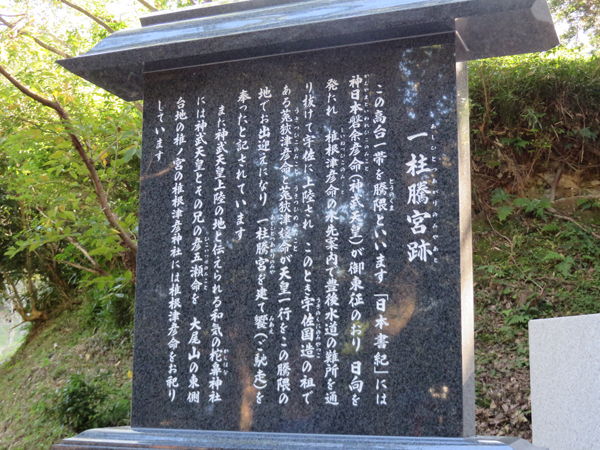 一柱騰宮跡
この高台一帯を騰隈といいます「日本書紀」には
神日本磐余彦命(神武天皇)が御東征のおり 日向を
発たれ 椎根津彦命の水先案内で豊後水道の難所を通
り抜けて宇佐に上陸され このとき宇佐国造の祖で
ある菟狭津彦命と菟狭津媛命が天皇一行をこの騰隈の
地でお出迎えになり 一柱騰宮を建て饗(ご馳走)を
奉ったと記されています
また神武天皇上陸の地と伝えられる和気の柁鼻神社
には神武天皇とその兄の彦五瀬命を 大尾山の東側
台地の椎ノ宮の椎根津彦神社には椎根津彦命をお祀り
しています